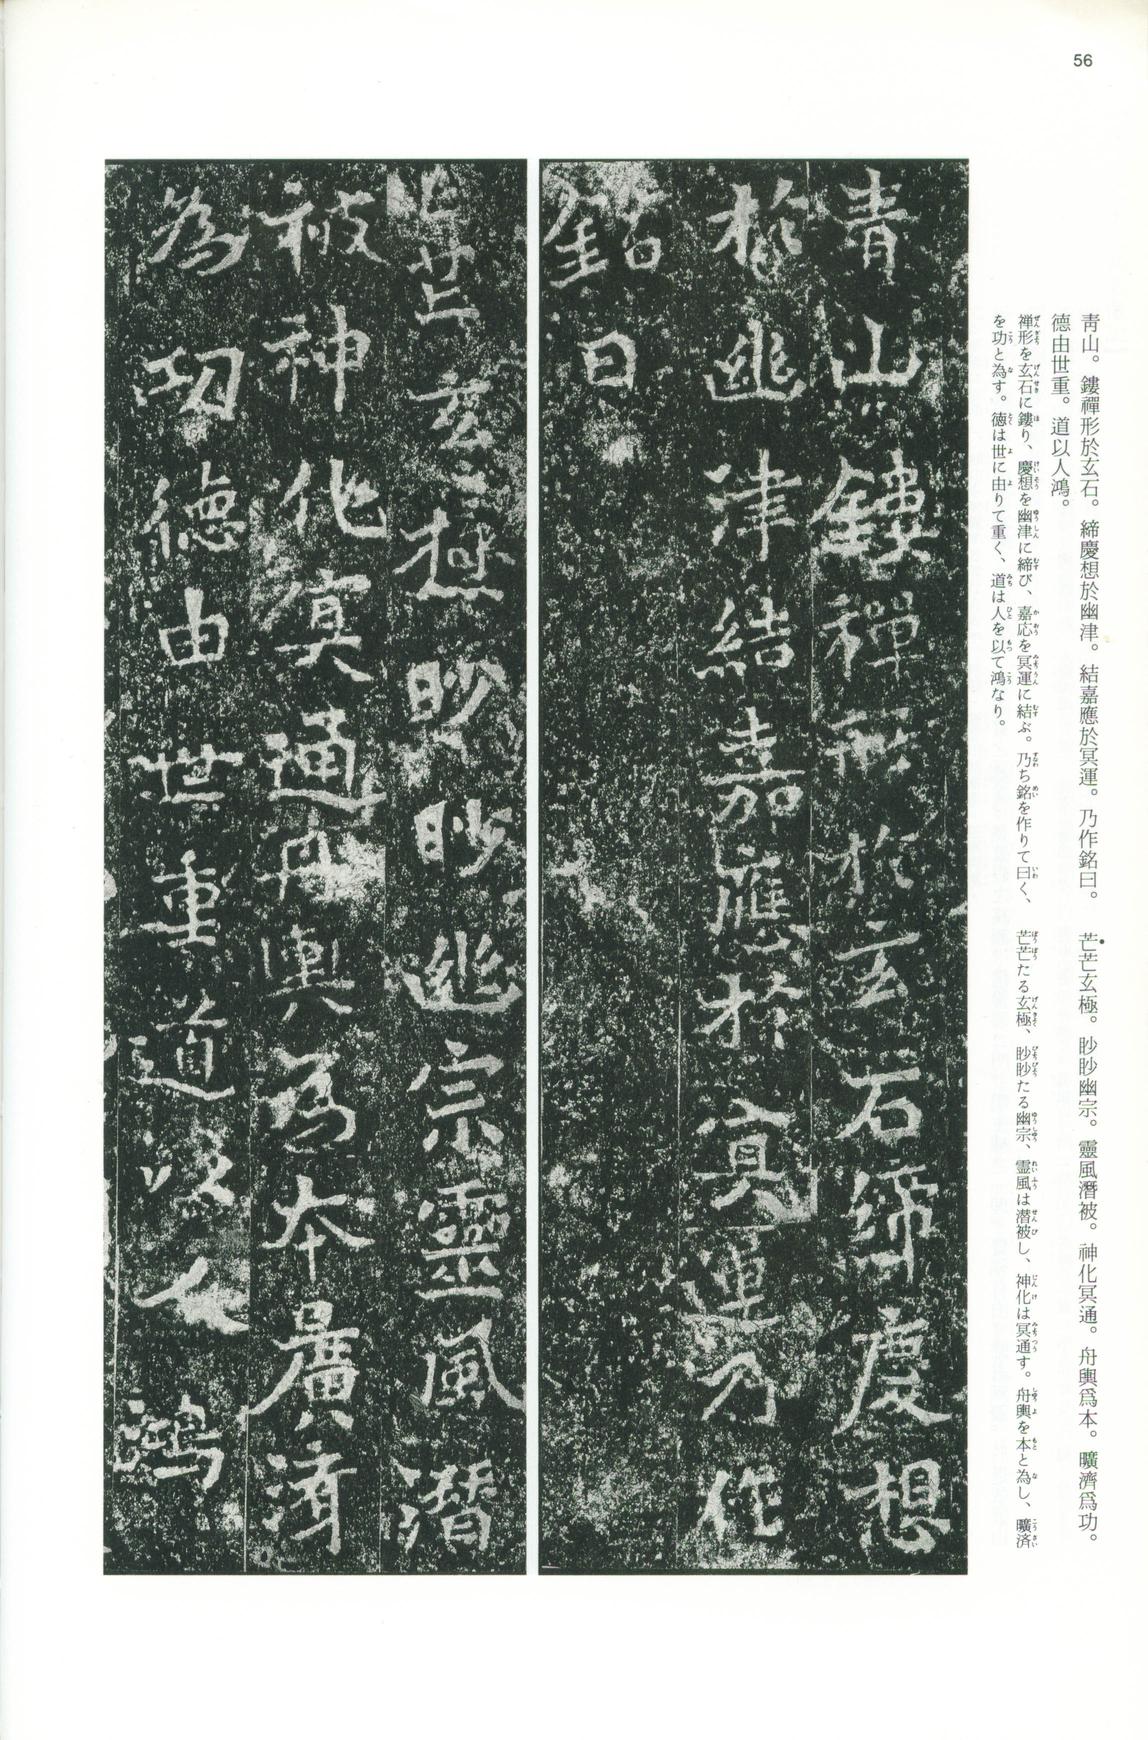 56
靑山。鏤禪形於玄石。締慶想於幽津。結嘉應於冥運。乃作銘曰。　芒芒玄極。眇眇幽宗。靈風潛被。神化冥通。舟輿爲本。曠濟爲功。
德由世重。道以人鴻。
禅形を玄石に鏤り、慶想を幽津に締び、嘉応を冥運に結ぶ。乃ち銘を作りて曰く、　芒芒たる玄極、眇眇たる幽宗、霊風は潜被し、神化は冥通す。舟輿を本と為し、曠済
を功と為す。徳は世に由りて重く、道は人を以て鴻なり。
青山鏤禪形於玄石締慶想
於幽津結嘉應於冥運乃作
銘曰
芒芒玄極眇眇幽宗靈風潛
被神化冥通舟輿為本曠濟
為功德由世重道以人鴻